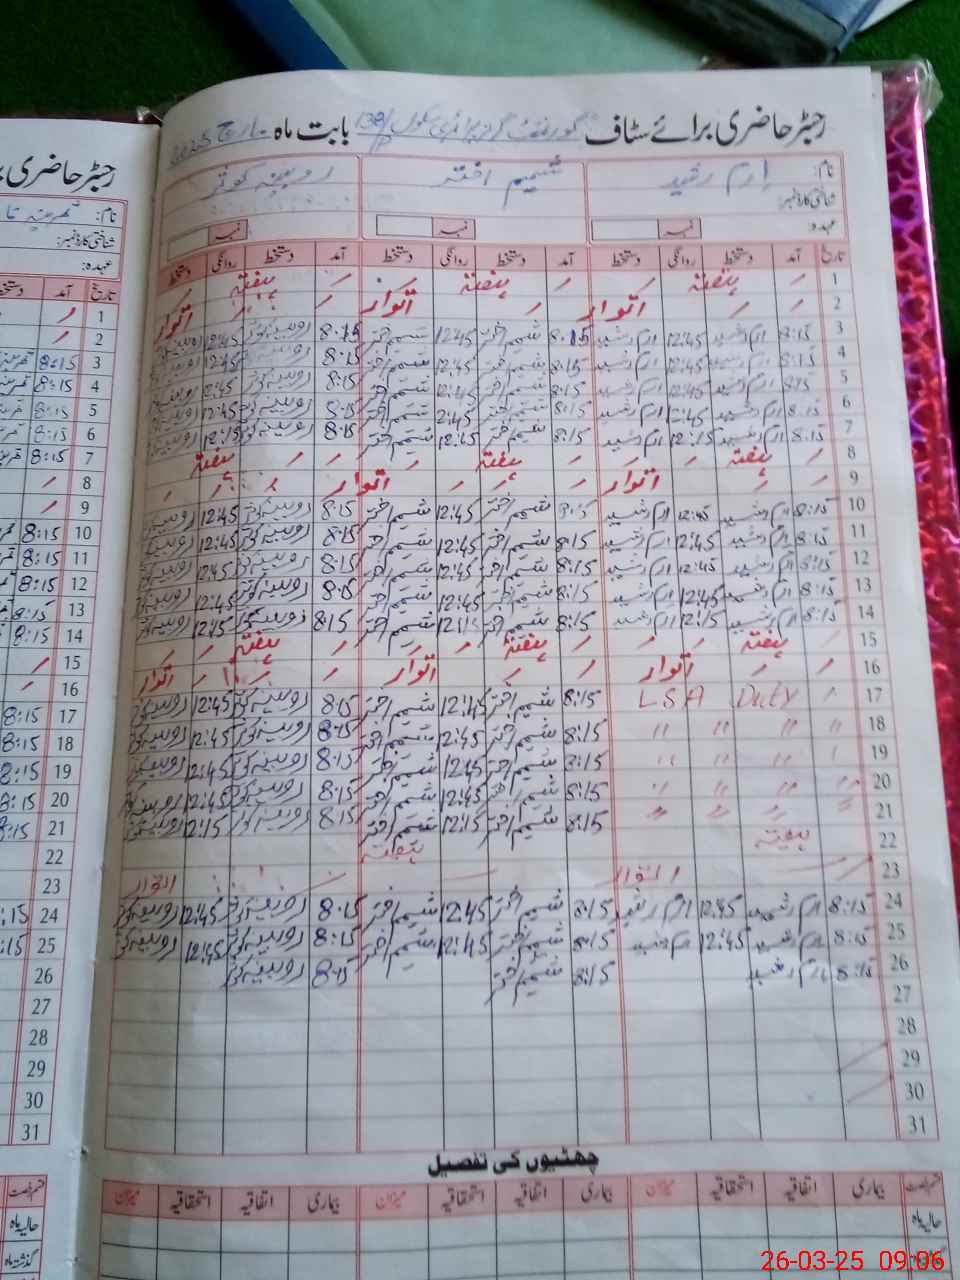 رجسٹر حاضری برائے سٹاف گورنمنٹ گرلز پرائمری سکول 138/P بابت ماہ مارچ
نام: ارم رشید شمیم اختر روبینہ کوثر
شناختی کارڈ نمبر:
عہدہ: نمبر نمبر نمبر
تاریخ آمد دستخط روانگی دستخط آمد دستخط روانگی دستخط آمد دستخط روانگی دستخط
1 ہفتہ ہفتہ ہفتہ
2 اتوار اتوار اتوار
3 8:15 ارم رشید 12:45 ارم رشید 8:15 شمیم اختر 12:45 شمیم اختر 8:15 روبینہ کوثر 12:45 روبینہ کوثر
4 8:15 ارم رشید 12:45 ارم رشید 8:15 شمیم اختر 12:45 شمیم اختر 8:15 روبینہ کوثر 12:45 روبینہ کوثر
5 8:15 ارم رشید 12:45 ارم رشید 8:15 شمیم اختر 12:45 شمیم اختر 8:15 روبینہ کوثر 12:45 روبینہ کوثر
6 8:15 ارم رشید 12:45 ارم رشید 8:15 شمیم اختر 2:45 شمیم اختر 8:15 روبینہ کوثر 12:45 روبینہ کوثر
7 8:15 ارم رشید 12:15 ارم رشید 8:15 شمیم اختر 12:15 شمیم اختر 8:15 روبینہ کوثر 12:15 روبینہ کوثر
8 ہفتہ ہفتہ ہفتہ
9 اتوار اتوار
10 8:15 ارم رشید 12:45 ارم رشید 8:15 شمیم اختر 12:45 شمیم اختر 8:15 روبینہ کوثر 12:45 روبینہ کوثر
11 8:15 ارم رشید 12:45 ارم رشید 8:15 شمیم اختر 12:45 شمیم اختر 8:15 روبینہ کوثر 12:45 روبینہ کوثر
12 8:15 ارم رشید 12:45 ارم رشید 8:15 شمیم اختر 12:45 شمیم اختر 8:15 روبینہ کوثر 12:45 روبینہ کوثر
13 8:15 ارم رشید 12:45 ارم رشید 8:15 شمیم اختر 12:45 شمیم اختر 8:15 روبینہ کوثر 12:45 روبینہ کوثر
14 8:15 ارم رشید 12:15 ارم رشید 8:15 شمیم اختر 12:15 شمیم اختر 815 روبینہ کوثر 12:45 روبینہ کوثر
15 ہفتہ ہفتہ ہفتہ
16 اتوار اتوار اتوار
17 L.SA Duty 8:15 شمیم اختر 12:45 شمیم اختر 8:15 روبینہ کوثر 12:45 روبینہ کوثر
18 " " " " 8:15 شمیم اختر 12:45 شمیم اختر 8:15 روبینہ کوثر 12:45 روبینہ کوثر
19 " " " " 8:15 شمیم اختر 12:45 شمیم اختر 8:15 روبینہ کوثر 12:45 روبینہ کوثر
20 " " " " 8:15 شمیم اختر 12:45 شمیم اختر 8:15 روبینہ کوثر 12:45 روبینہ کوثر
21 " " " " 8:15 شمیم اختر 12:15 شمیم اختر 8:15 روبینہ کوثر 12:15 روبینہ کوثر
22 ہفتہ ہفتہ
23 اتوار اتوار
24 8:15 ارم رشید 12:45 ارم رشید 8:15 شمیم اختر 12:45 شمیم اختر 8:15 روبینہ کوثر 12:45 روبینہ کوثر
25 8:15 ارم رشید 12:45 ارم رشید 8:15 شمیم اختر 12:45 شمیم اختر 8:15 روبینہ کوثر 12:45 روبینہ کوثر
26 8:15 ارم رشید 8:15 شمیم اختر 8:15 روبینہ کوثر
27
28
29
30
31
چھٹیوں کی تفصیل
قسم رخصت بیماری اتفاقیہ استحقاقیہ میزان بیماری اتفاقیہ استحقاقیہ میزان بیماری اتفاقیہ استحقاقیہ میزان
حالیہ ماہ
گذشتہ ماہ
رجسٹر حاضری
نام:
شناختی کارڈ نمبر:
عہدہ:
تاریخ آمد
1
2
3 8:15
4 8:15
5 8:15
6 8:15
7 8:15
8
9
10 8:15
11 8:15
12 8:15
13 8:15
14 8:15
15
16
17 8:15
18 8:15
19 8:15
20 8:15
21 8:15
22
23
24 :15
25 :15
26
27
28
29
30
31
قسم رخصت
حالیہ ماہ
گذشتہ ماہ
26-03-25 09:06